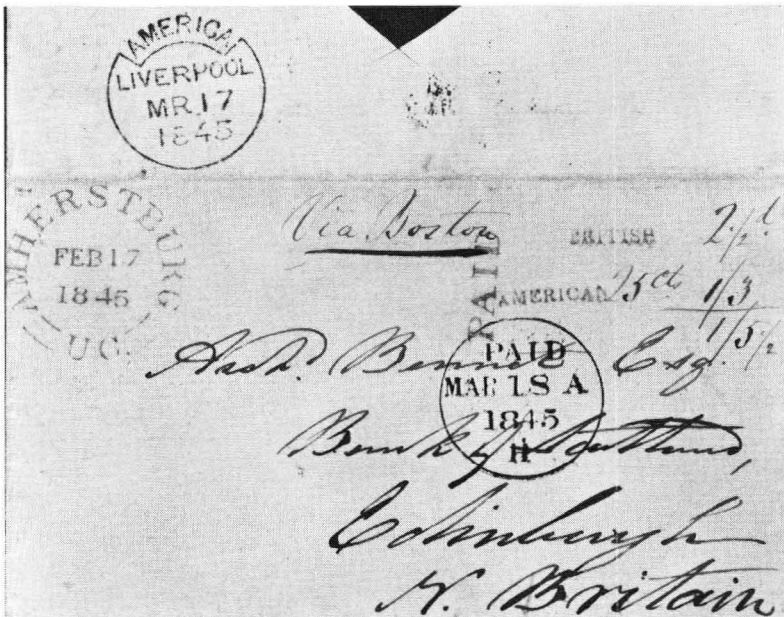 AMERICA
LIVERPOOL
MR 17
1845
AMHERSTBURG
FEB 17
1845
U.C.
Via Boston
PAID
BRITISH 2½d
AMERICAN 25cts 1/3
1/5½
Archd. Bennet Esqr.
PAID
MAR 18 A
1845
H
Bank of Scotland,
Edinburgh
N. Britain